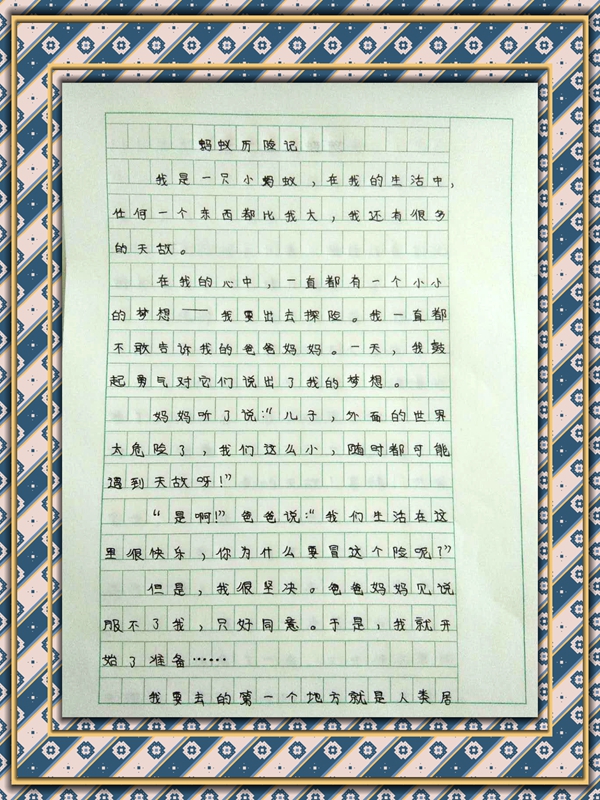 蚂蚁历险记
我是一只小蚂蚁，在我的生活中，
任何一个东西都比我大，我还有很多
的天敌。
在我的心中，一直都有一个小小
的梦想——我要出去探险。我一直都
不敢告诉我的爸爸妈妈。一天，我鼓
起勇气对它们说出了我的梦想。
妈妈听了说：“儿子，外面的世界
太危险了，我们这么小，随时都可能
遇到天敌呀！”
“是啊！”爸爸说：“我们生活在这
里很快乐，你为什么要冒这个险呢？”
但是，我很坚决。爸爸妈妈见说
服不了我，只好同意。于是，我就开
始了准备……
我要去的第一个地方就是人类居